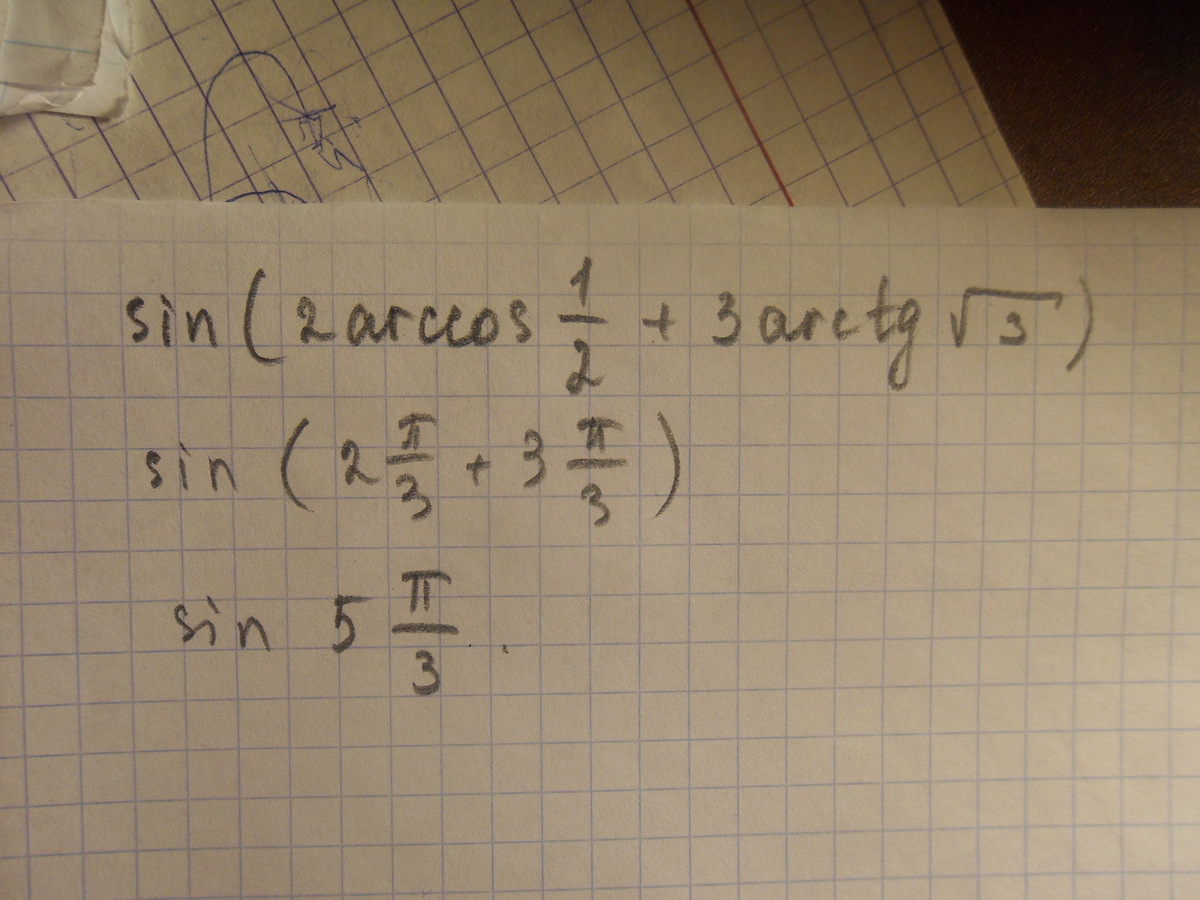 sin(2 arccos 1/2 + 3 arctg √3)
sin (2 π/3 + 3 π/3)
sin 5 π/3.